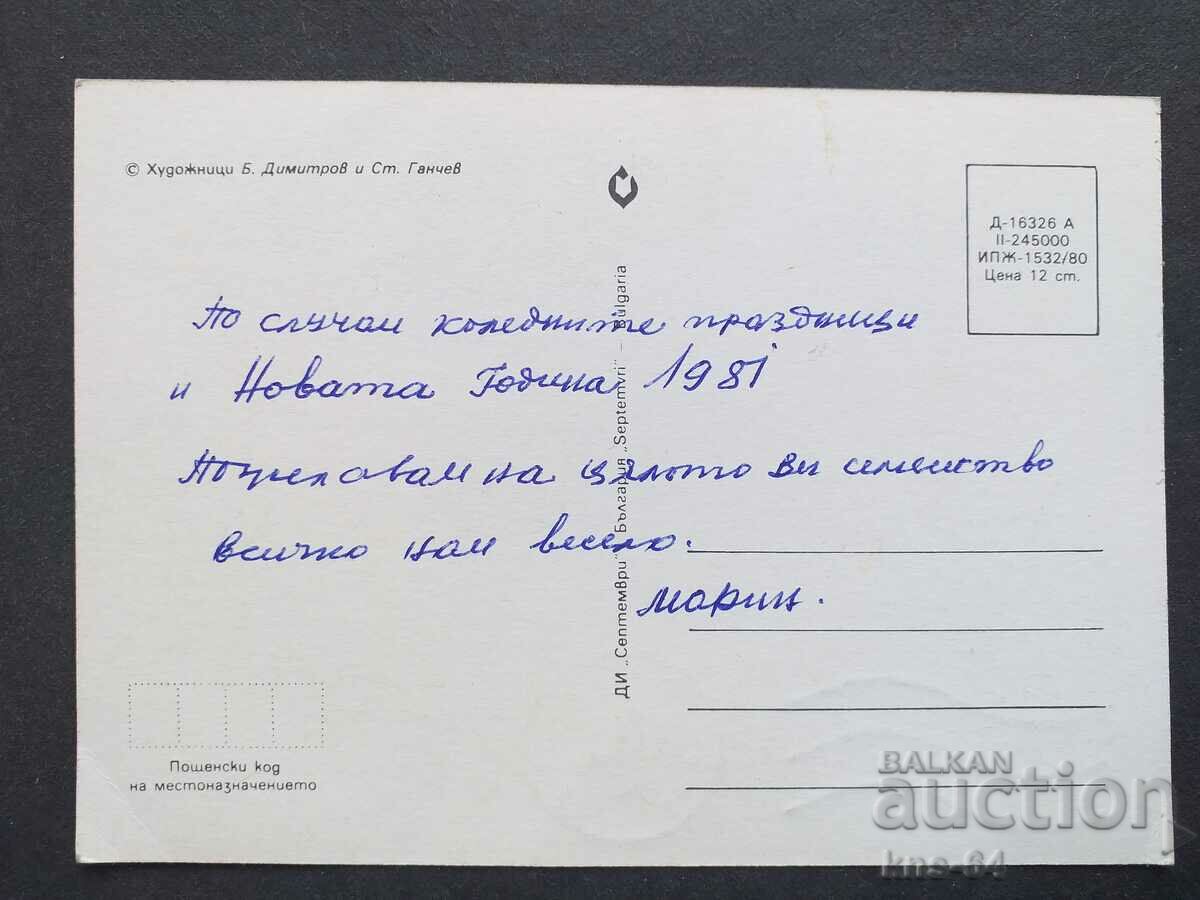 © Художници Б. Димитров и Ст. Ганчев
Д-16326 А
II-245000
ИПЖ-1532/80
Цена 12 ст.
По случай коледните празници
и Новата Година 1981
Пожелавам на цялото ви семейство
всичко най весело.
Марин.
ДИ „Септември" България „Septemvri" – Bulgaria
Пощенски код
на местоназначението
BALKAN
auction
kns-64